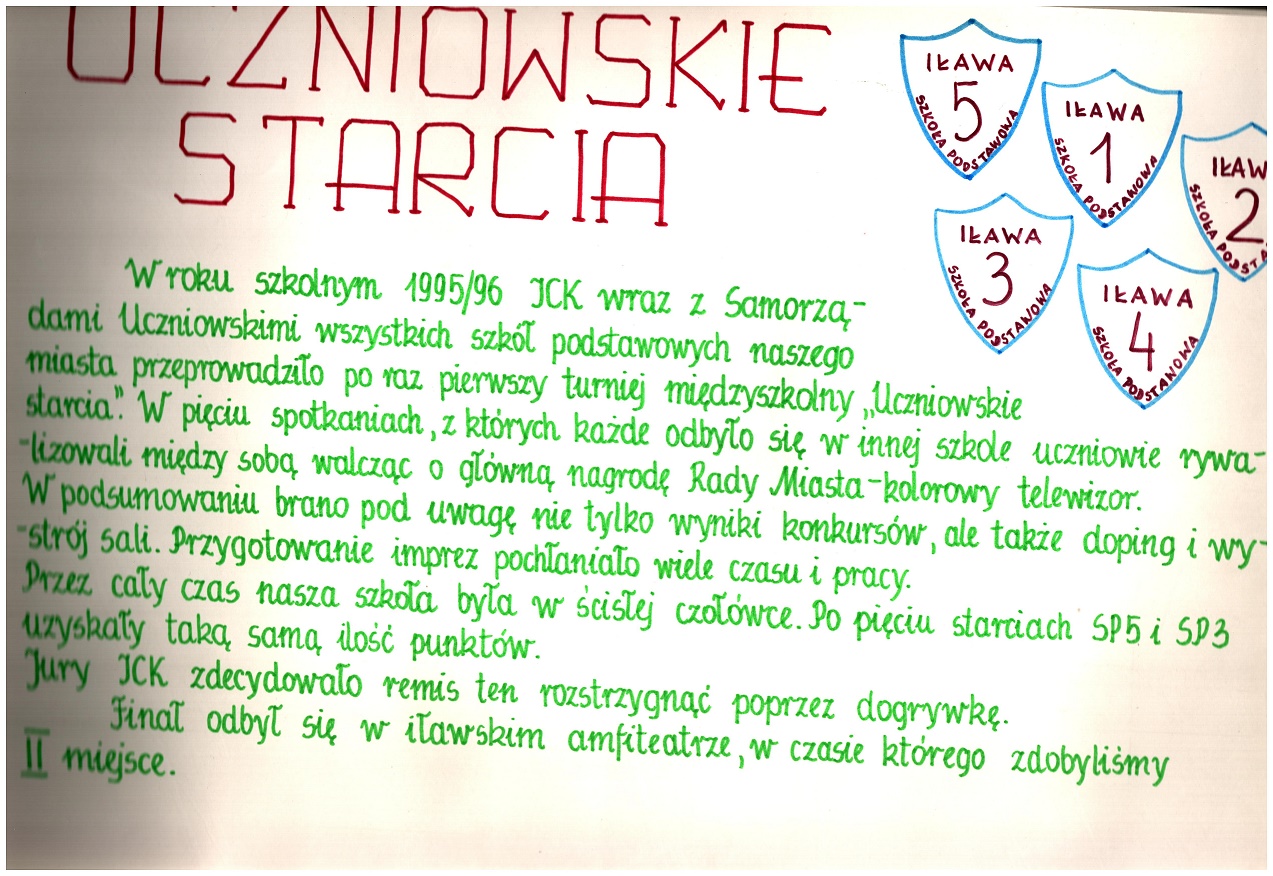 UCZNIOWSKIE
STARCIA
IŁAWA
5
SZKOŁA PODSTAWOWA
IŁAWA
1
SZKOŁA PODSTAWOWA
IŁAW
2
SZKOŁA PODSTA
IŁAWA
3
SZKOŁA PODSTAWOWA
IŁAWA
4
SZKOŁA PODSTAWOWA
W roku szkolnym 1995/96 JCK wraz z Samorzą-
dami Uczniowskimi wszystkich szkół podstawowych naszego
miasta przeprowadziło po raz pierwszy turniej międzyszkolny „Uczniowskie
starcia". W pięciu spotkaniach, z których każde odbyło się w innej szkole uczniowie rywa-
-lizowali między sobą walcząc o główną nagrodę Rady Miasta-kolorowy telewizor.
W podsumowaniu brano pod uwagę nie tylko wyniki konkursów, ale także doping i wy-
-strój sali. Przygotowanie imprez pochłaniało wiele czasu i pracy.
Przez cały czas nasza szkoła była w ścisłej czołówce. Po pięciu starciach SP5 i SP3
uzyskały taką samą ilość punktów.
Jury JCK zdecydowało remis ten rozstrzygnąć poprzez dogrywkę.
Finał odbył się w iławskim amfiteatrze, w czasie którego zdobyliśmy
II miejsce.